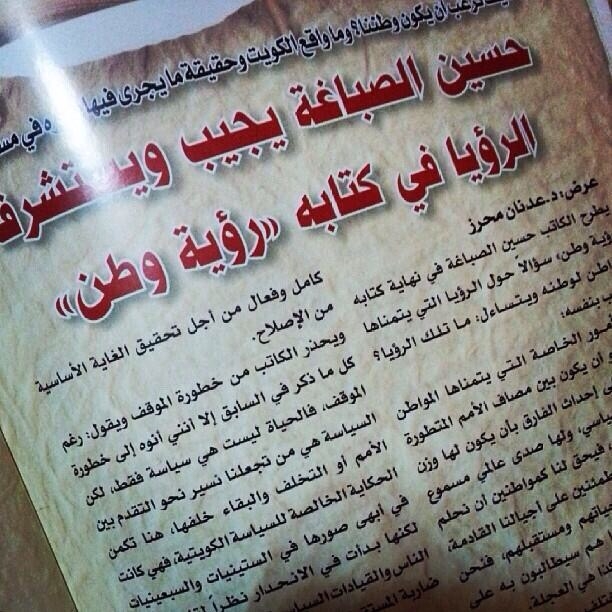 ترغب أن يكون وطننا؟ وما واقع الكويت وحقيقة ما يجرى فيها في
حسين الصباغة يجيب ويستشرف
الرؤيا في كتابه «رؤية وطن»
عرض: د. عدنان محرز
يطرح الكاتب حسين الصباغة في نهاية كتابه
وطن، سؤالاً حول الرؤيا التي يتمناها
لوطنه ويتساءل: ما تلك الرؤيا؟
بنفسه:
الخاصة التي يتمناها المواطن
أن يكون بين مصاف الأمم المتطورة
إحداث الفارق بأن يكون لها وزن
ولها صدى عالمي مسموع
فيحق لنا كمواطنين أن نحلم
على أجيالنا القادمة،
ومستقبلهم، فنحن
هم سيطالبون به على
هي العجلة
كامل وفعال من أجل تحقيق الغاية الأساسية
من الإصلاح.
ويحذر الكاتب من خطورة الموقف ويقول: رغم
كل ما ذكر في السابق إلا أنني أنوه إلى خطورة
الموقف، فالحياة ليست هي سياسة فقط، لكن
السياسة هي من تجعلنا نسير نحو التقدم بين
الأمم أو التخلف والبقاء خلفها، هنا تكمن
الحكاية الخالصة للسياسة الكويتية، فهي كانت
في أبهى صورها في الستينيات والسبعينيات
لكنها بدأت في الانحدار نظراً
الناس والقيادات
ضاربة